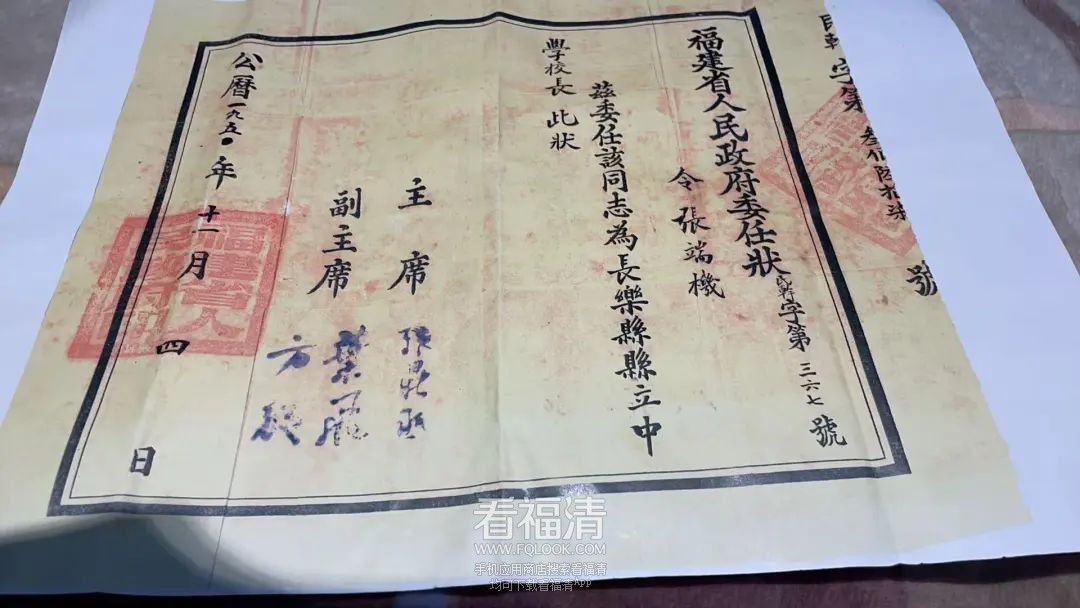 字第叁佰陸拾柒號
福建省人民政府委任狀
字第三六七號
令張端機
茲委任該同志為長樂縣縣立中
學校長 此狀
主席 張鼎丞
副主席 葉飛
方毅
公曆一九五〇年十一月四日
看福清
WWW.FQLOOK.COM
手机应用商店搜索看福清
均可下载看福清App